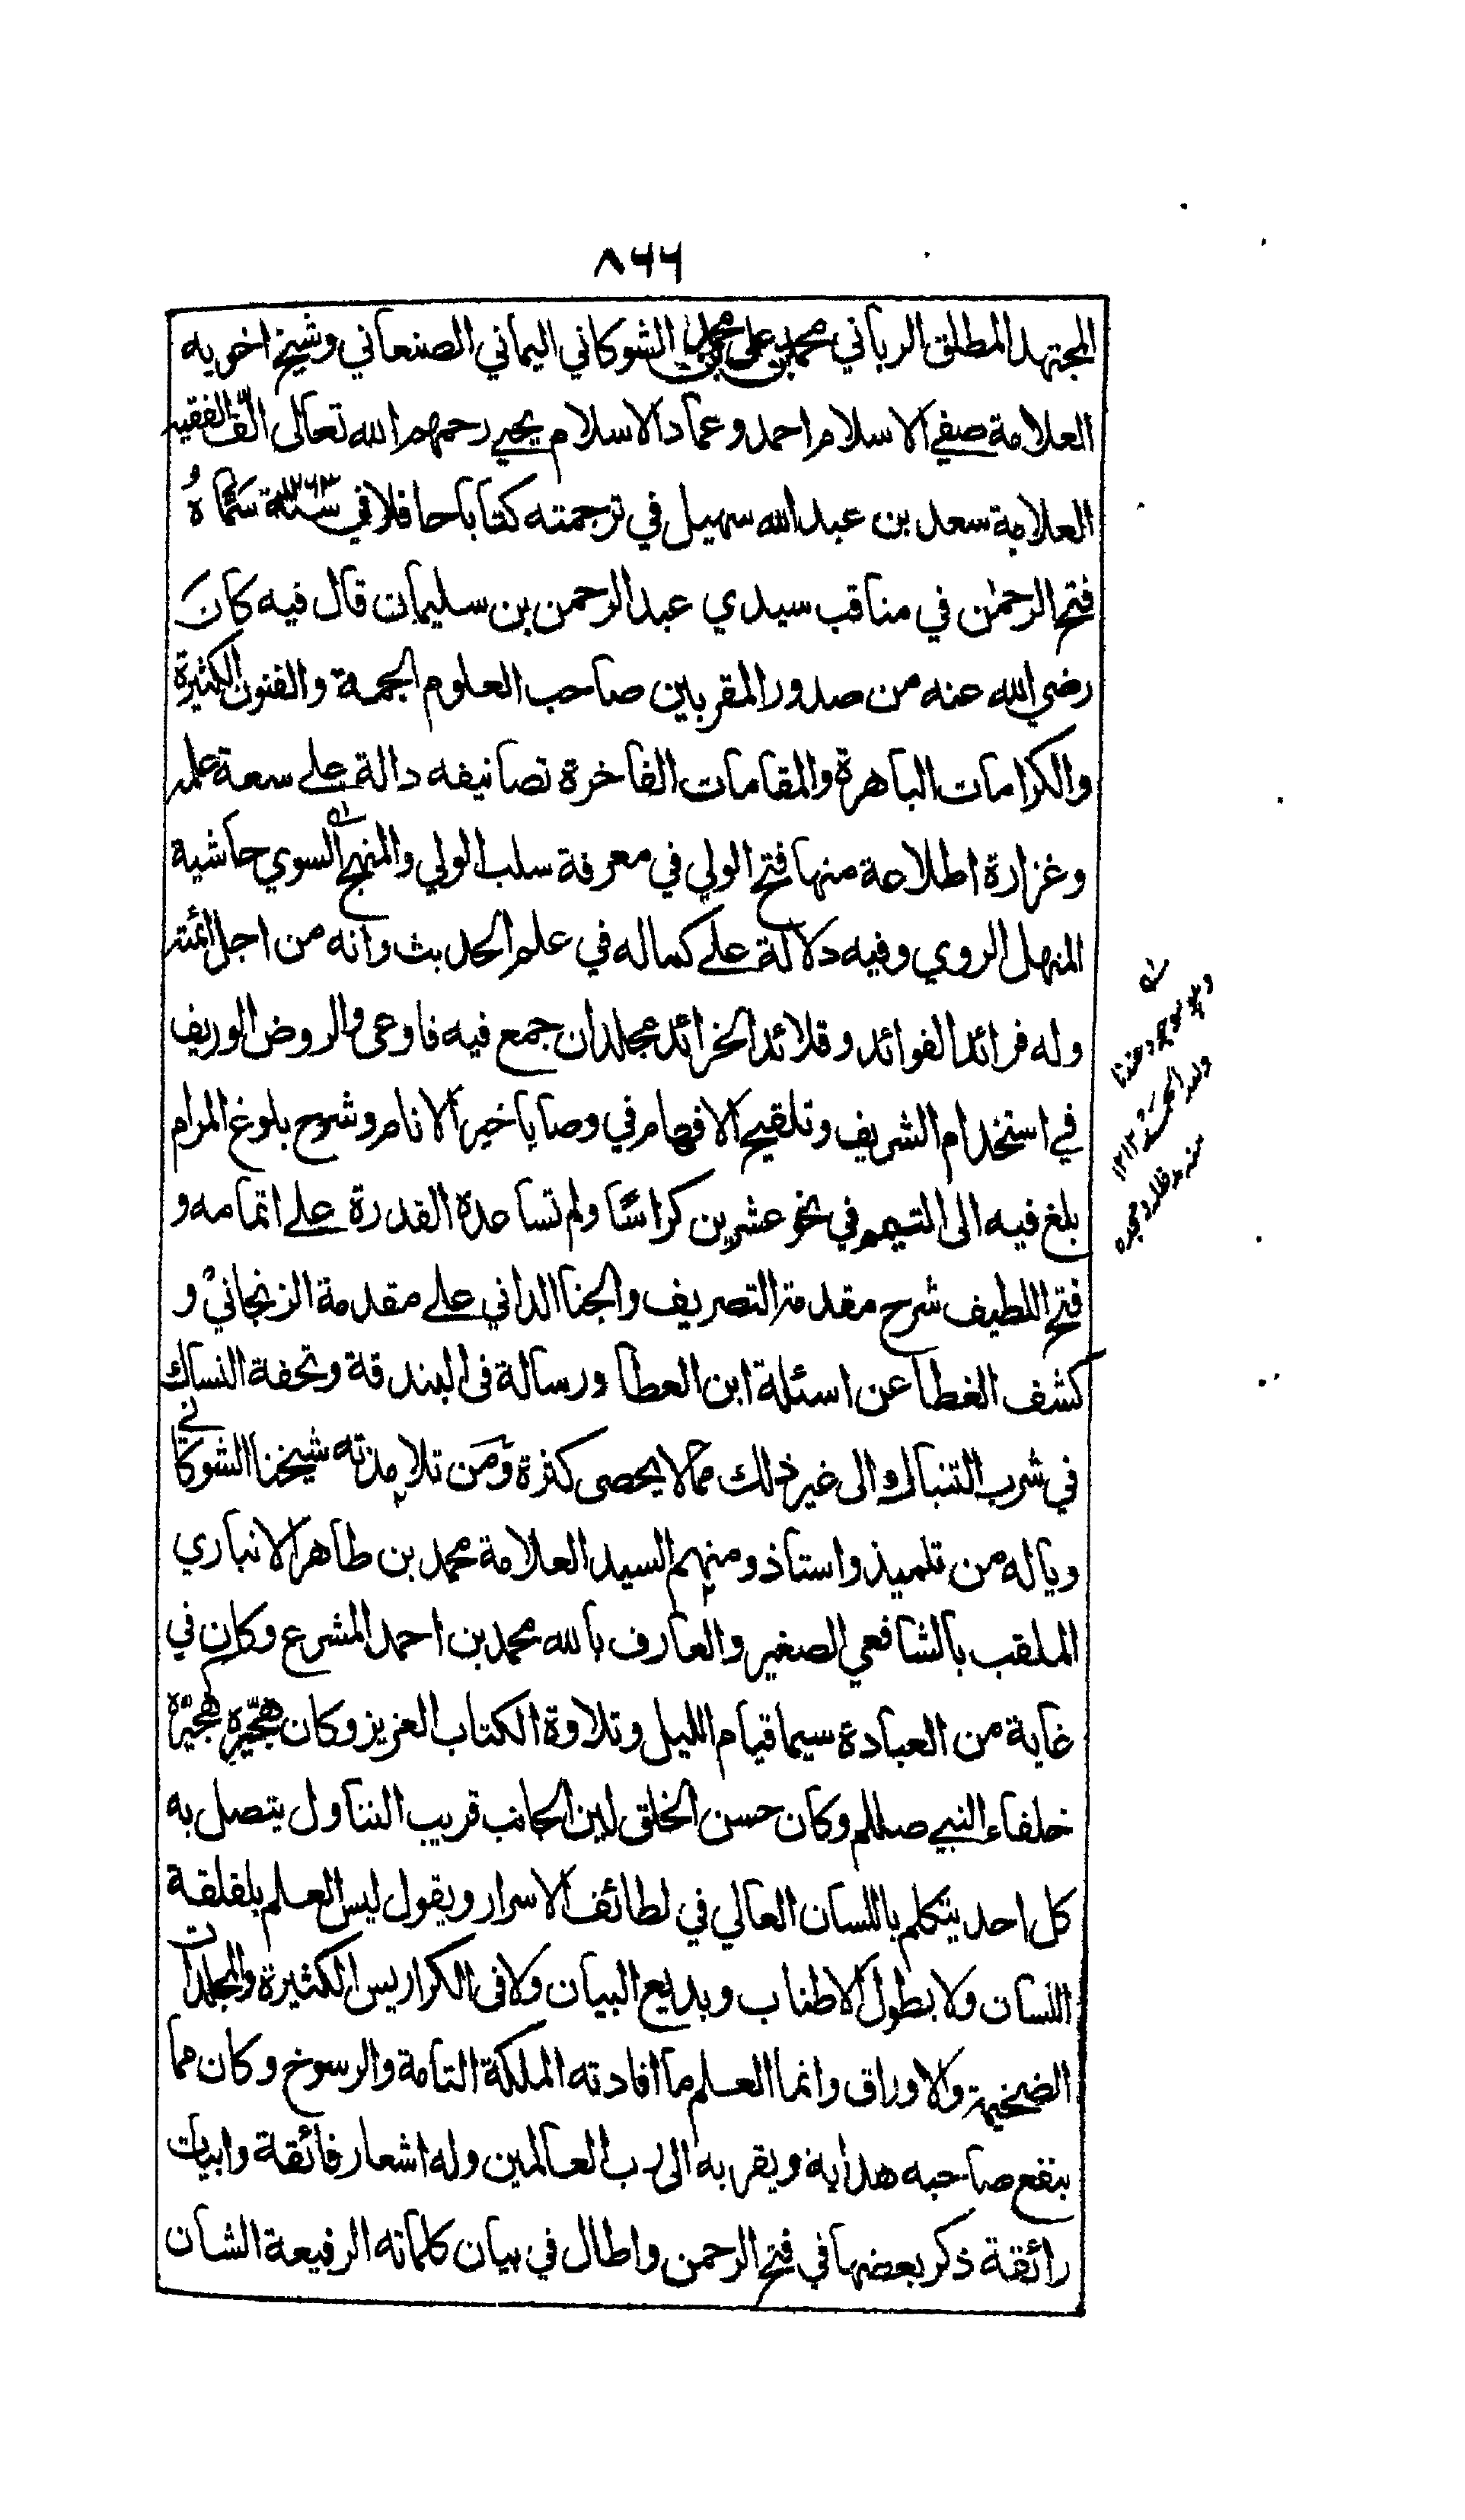 ٨٦٦
المجتهد المطلق الرباني محمد بن علي بن محمد الشوكاني اليماني الصنعاني وشيخ اخويه
العلامة صفي الاسلام احمد وعماد الاسلام يحيى رحمهم الله تعالى الّف الفقيه
العلامة سعد بن عبد الله سهيل في ترجمته كتابا حافلا في سنة سَمَّاهُ
فتح الرحمٰن في مناقب سيدي عبد الرحمن بن سليمان قال فيه كانَ
رضي الله عنه من صدور المقربين صاحب العلوم الجمة والفنون الكثيرة
والكرامات الباهرة والمقامات الفاخرة تصانيفه دالة على سعة علمه
وغزارة اطلاعة منها فتح الولي في معرفة سلب الولي والمنهج السوي حاشية
المنهل الروي وفيه دلالة على كماله في علم الحديث وانه من اجل ائمته
وله فرائد الفوائد وقلائد الخرائد مجلدان جمع فيه فاوعى والروض الوريف
في استخدام الشريف وتلقيح الافهام في وصايا خير الانام وشرح بلوغ المرام
بلغ فيه الى التيمم في نحو عشرين كراسًا ولم تساعده القدرة على اتمامه و
فتح اللطيف شرح مقدمة التصريف والجنا الداني على مقدمة الزنجاني و
كشف الغطا عن اسئلة ابن العطا ورسالة فى البندقة وتحفة النساك
في شرب التنباك والى غير ذلك مما لا يحصى كثرة وَمن تلامذته شيخنا الشوكاني
وياله من تلميذ واستاذ ومنهم السيد العلامة محمد بن طاهر الانباري
الملقب بالشافعي الصغير والعارف بالله محمد بن احمد المشرع وكان في
غاية من العبادة سيما قيام الليل وتلاوة الكتاب العزيز وكان هجّيره هجّيرة
خلفاء النبي صللم وكان حسن الخلق لين الجانب قريب التناول يتصل به
كل احد يتكلم باللسان العالي في لطائف الاسرار ويقول ليس العلم بلقلقة
اللسان ولا بطول الاطناب وبديع البيان ولا فى الكراريس الكثيرة والمجلدات
الضخيمة والاوراق وانما العلم ما افادته الملكة التامة والرسوخ وكان مما
ينفع صاحبه هداية ويقربه الى رب العالمين وله اشعار فائقة وابيات
رائقة ذكر بعضها في فتح الرحمن واطال في بيان كلماته الرفيعة الشان